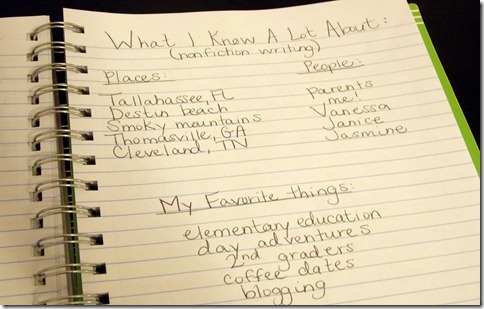 What I Know A Lot About:
(nonfiction writing)
Places:
Tallahassee, FL
Destin beach
Smoky mountains
Thomasville, GA
Cleveland, TN
People:
parents
me!
Vanessa
Janice
Jasmine
My Favorite things:
elementary education
day adventures
2nd graders
coffee dates
blogging